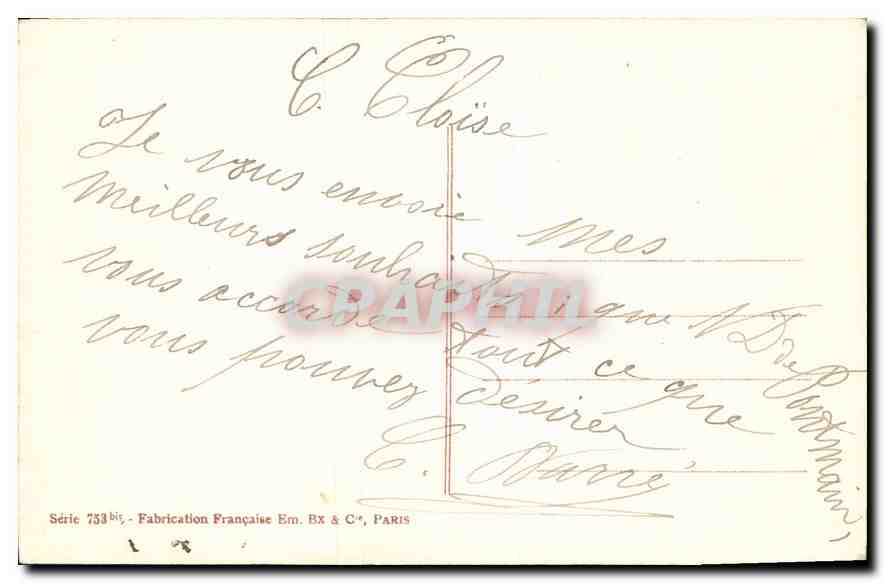 C. Cloïse
Je vous envoie mes
meilleurs souhaits, que N D de Pontmain,
vous accorde tout ce que
vous pouvez désirer
C. Barré
CPAPHIL
Série 753 bis - Fabrication Française Em. BX & Cie, PARIS